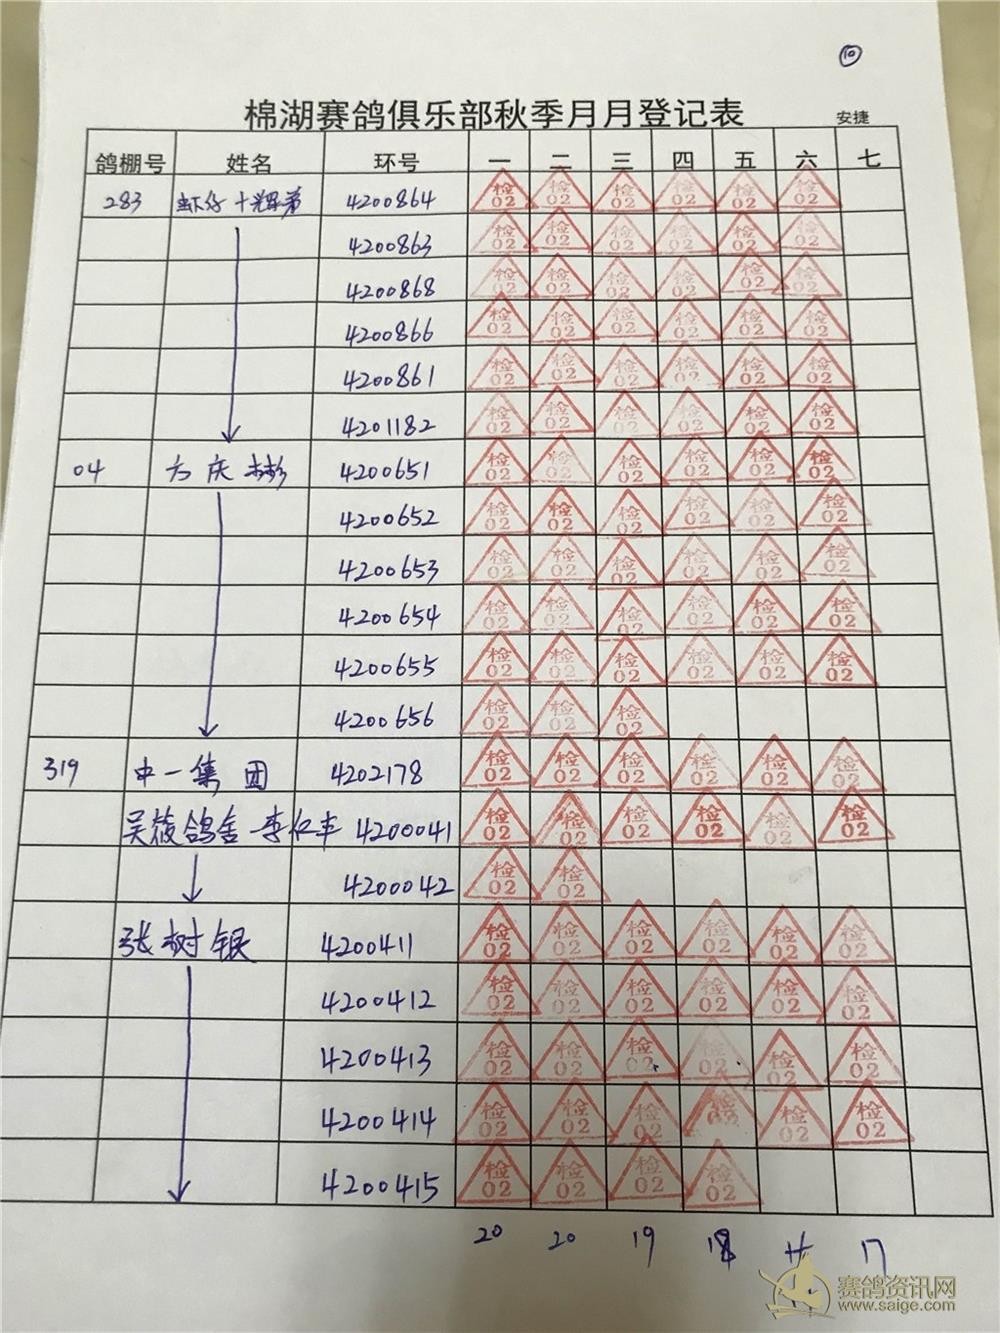 10
棉湖赛鸽俱乐部秋季月月登记表 安捷
鸽棚号 姓名 环号 一 二 三 四 五 六 七
283 虾仔十辉弟 4200864 检02 检02 检02 检02 检02 检02
4200863 检02 检02 检02 检02 检02 检02
4200868 检02 检02 检02 检02 检02 检02
4200866 检02 检02 检02 检02 检02 检02
4200861 检02 检02 检02 检02 检02 检02
4201182 检02 检02 检02 检02 检02 检02
04 方庆彬 4200651 检02 检02 检02 检02 检02 检02
4200652 检02 检02 检02 检02 检02 检02
4200653 检02 检02 检02 检02 检02 检02
4200654 检02 检02 检02 检02 检02 检02
4200655 检02 检02 检02 检02 检02 检02
4200656 检02 检02 检02
319 中一集团 4202178 检02 检02 检02 检02 检02 检02
吴筱鸽舍-李仁丰 4200041 检02 检02 检02 检02 检02 检02
4200042 检02 检02
张树银 4200411 检02 检02 检02 检02 检02 检02
4200412 检02 检02 检02 检02 检02 检02
4200413 检02 检02 检02 检02 检02 检02
4200414 检02 检02 检02 检02 检02 检02
4200415 检02 检02 检02 检02
20 20 19 18 17
赛鸽资讯网
www.saige.com